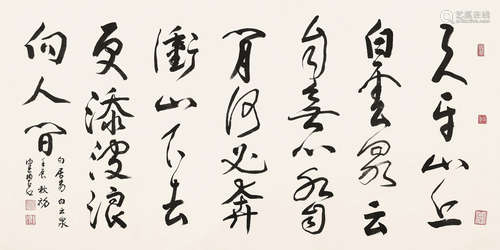 天平山上
白雲泉云
自無心水自
閒何必奔
衝山下去
更添波浪
向人间
白居易白云泉